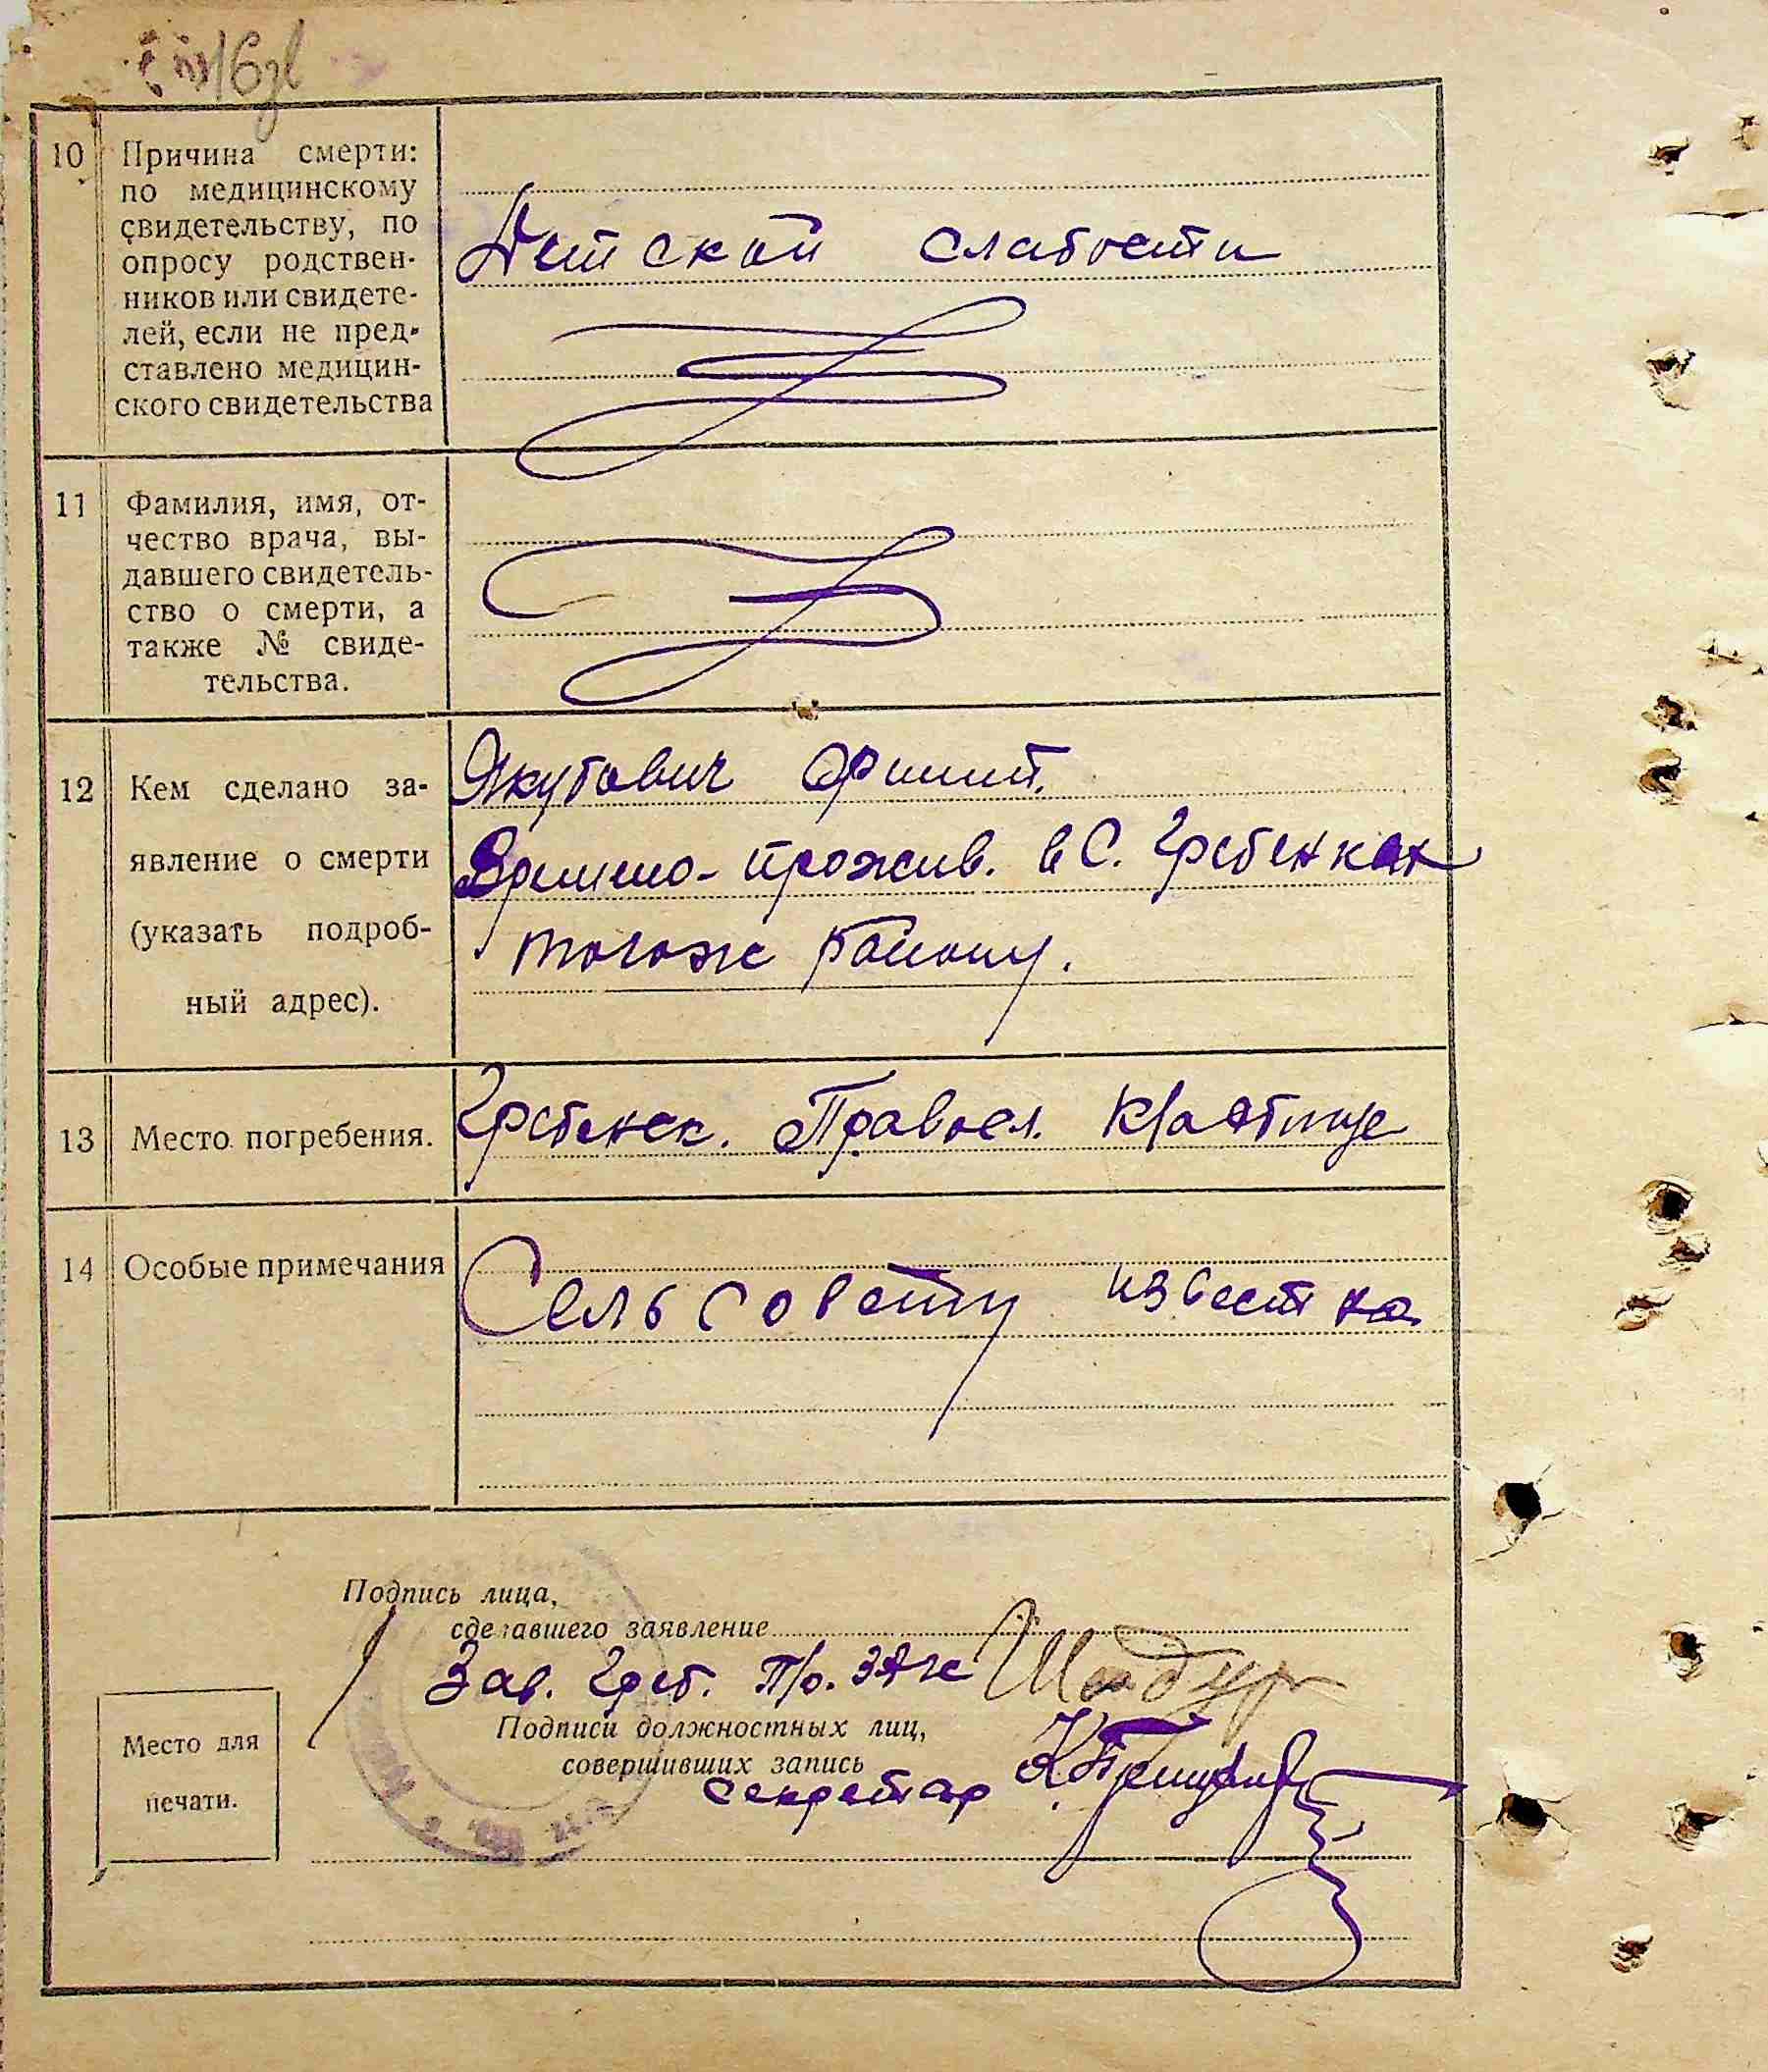 10
Причина смерти:
по медицинскому
свидетельству, по
опросу родствен-
ников или свидете-
лей, если не пред-
ставлено медицин-
ского свидетельства
Детской слабости
11
Фамилия, имя, от-
чество врача, вы-
давшего свидетель-
ство о смерти, а
также № свиде-
тельства.
12
Кем сделано за-
явление о смерти
(указать подроб-
ный адрес).
Якубович
прожив. в С. Гребенках
тогоже району.
13
Место погребения.
Гребенск. Правосл. Кладбище
14
Особые примечания
Сельсовету известно
Подпись лица,
сделавшего заявление
Зав. Греб. Пр. ЗАГС
Подписи должностных лиц,
совершивших запись
секретар
Место для
печати.